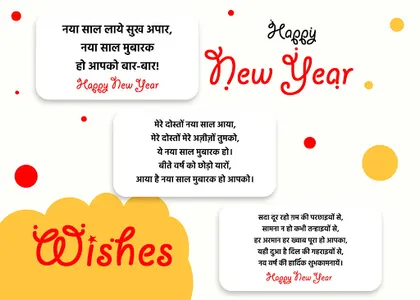 नया साल लाये सुख अपार,
नया साल मुबारक
हो आपको बार-बार!
Happy New Year
Happy
New Year
मेरे दोस्तों नया साल आया,
मेरे दोस्तों मेरे अज़ीज़ों तुमको,
ये नया साल मुबारक हो।
बीते वर्ष को छोड़ो यारों,
आया है नया साल मुबारक हो आपको।
Wishes
सदा दूर रहो ग़म की परछाइयों से,
सामना न हो कभी तन्हाइयों से,
हर अरमान हर ख्वाब पूरा हो आपका,
यही दुआ है दिल की गहराइयों से,
नव वर्ष की हार्दिक शुभकामनायें।
Happy New Year